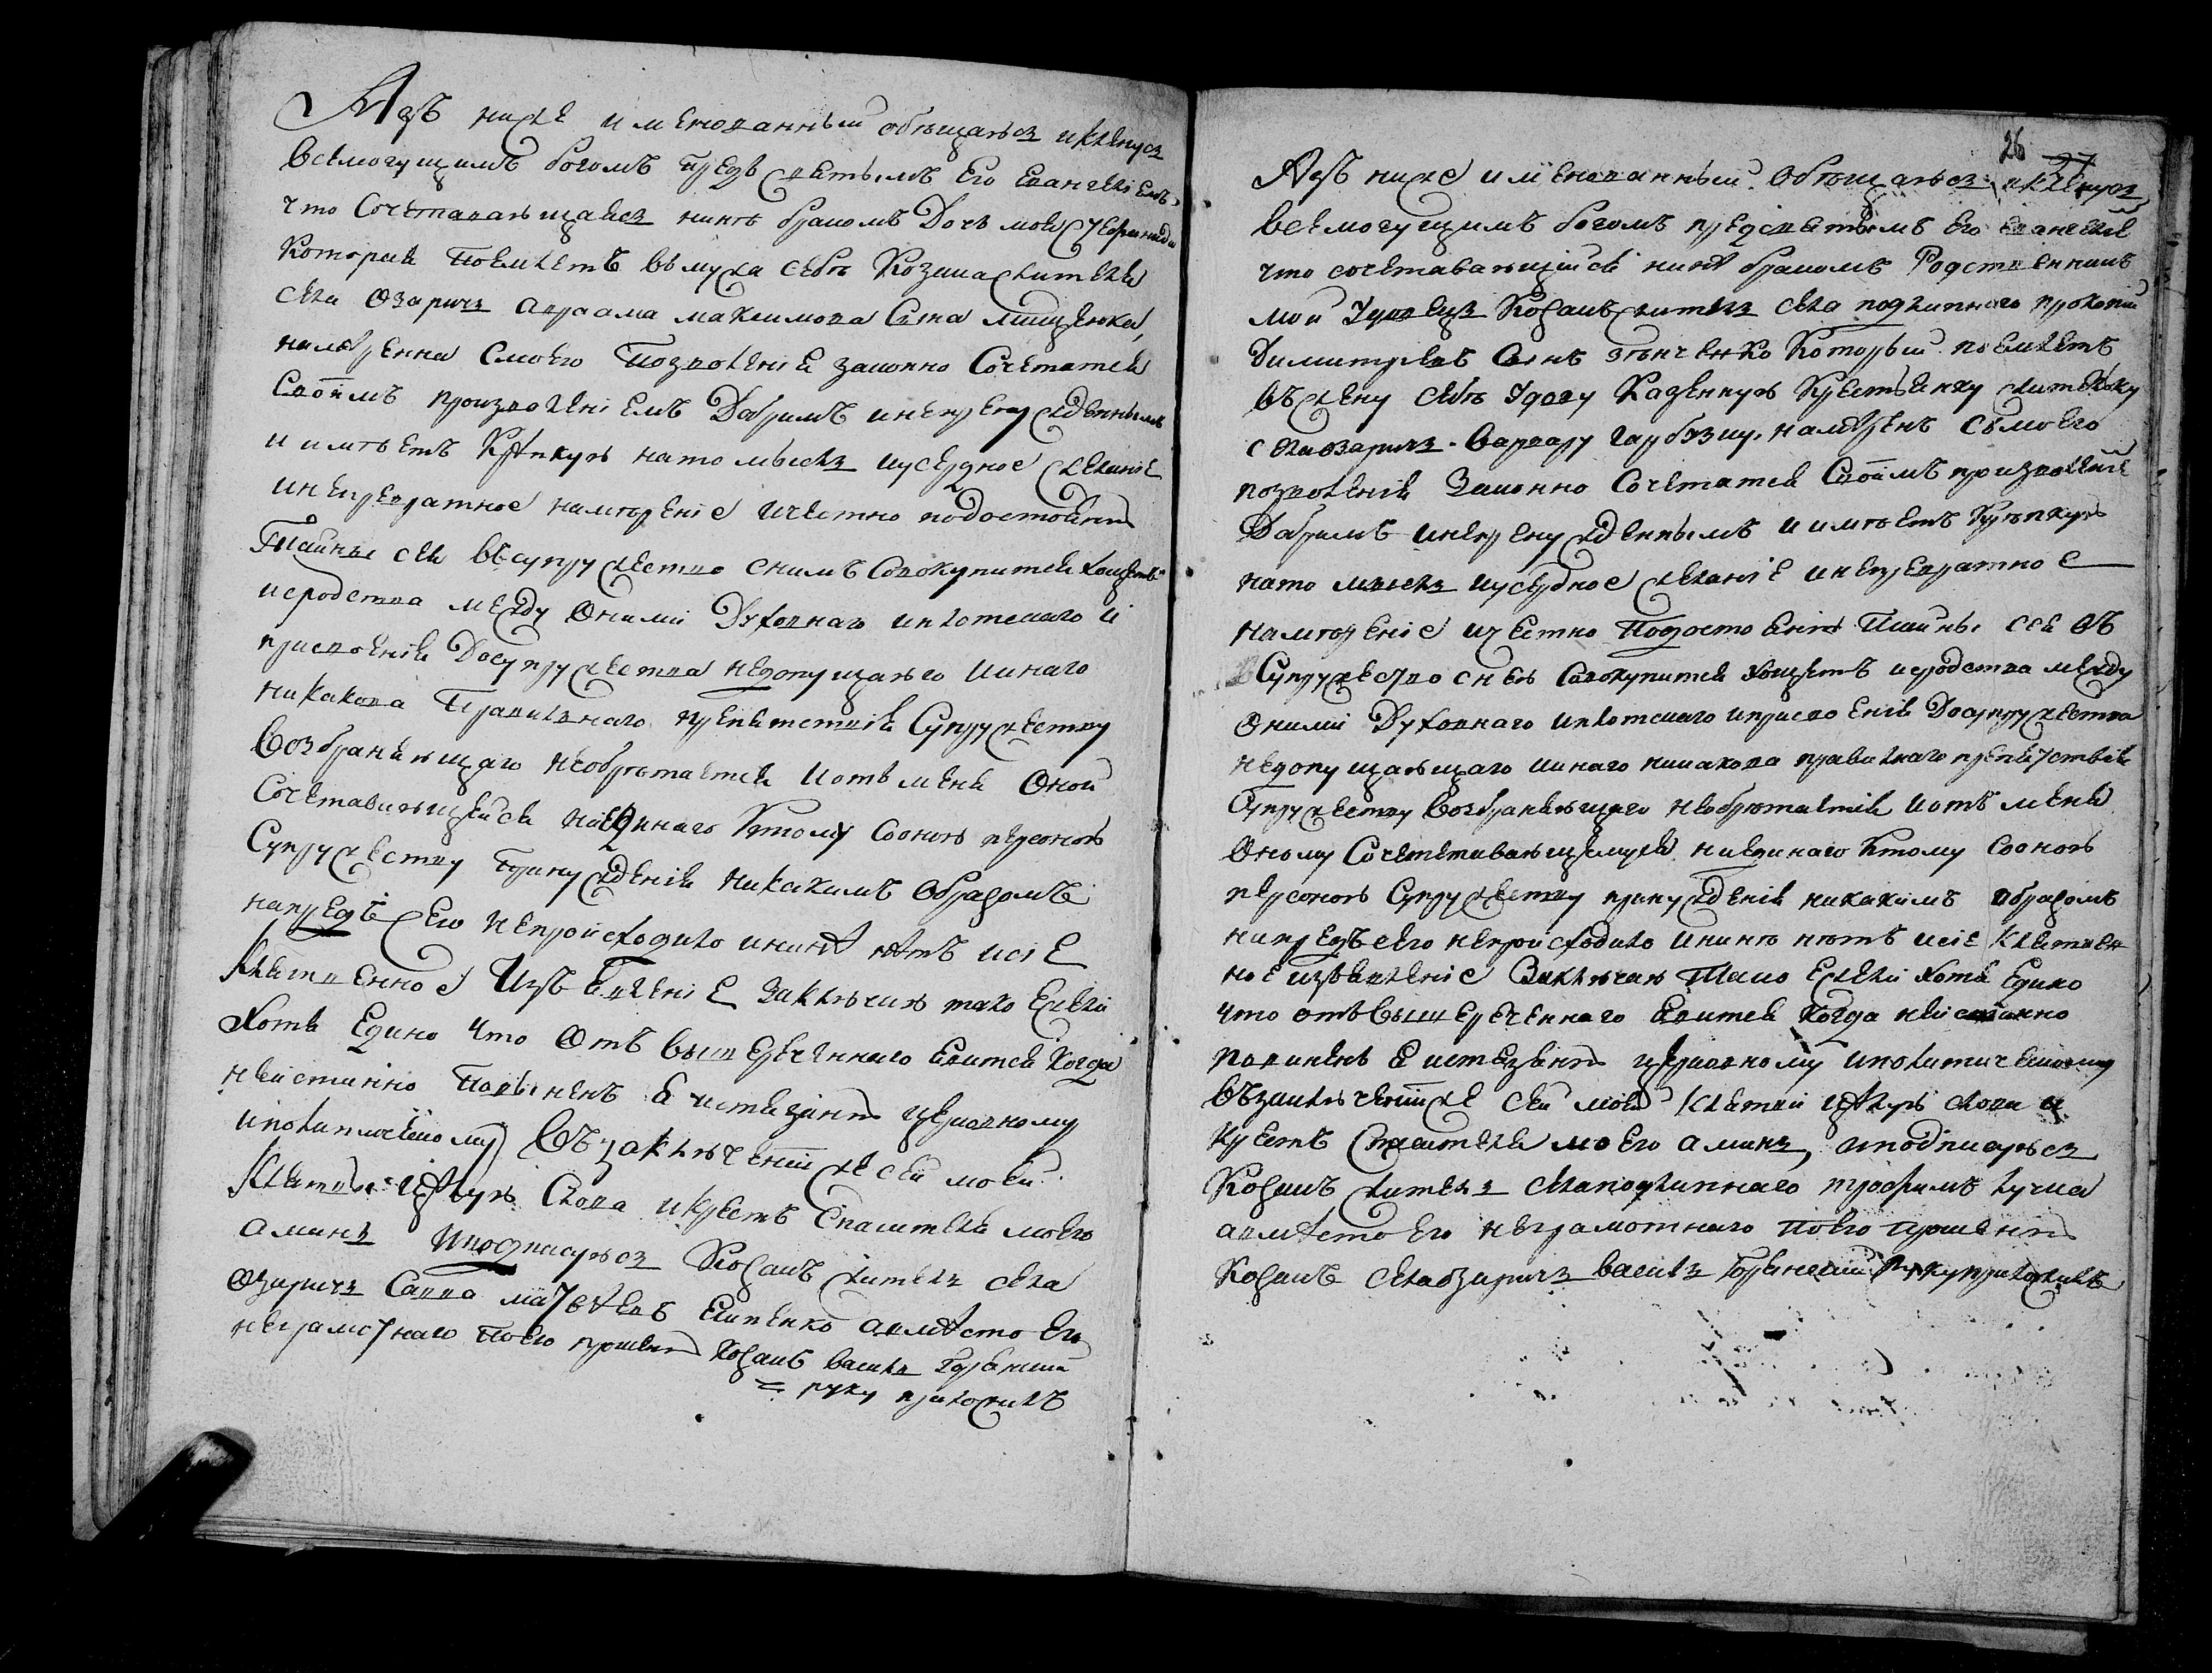 Азъ ниже именованный обѣщаюсь иклянусь
всемогущимъ богомъ предъ святымъ Его Евангеліемъ
что Сочетавающаяся нинѣ бракомъ Дочь моя
Которая Поемлетъ въмужа себѣ Козака жителя
села Озаричъ Авраама максимова Сина
намѣренна Смоего Позволенія законно Сочетатся
Своімъ произволеніемъ Добримъ иненуженнымъ
и имѣетъ Крѣпкую натомысль иусердное желаніе
инепревратное намѣреніе ичестно подостоянію
Тайны сея въсупружество снимъ Совокупитися хощетъ
иродства между Оними Духовнаго иплотскаго и
присвоенія Досупружества недопущающего иинаго
никакова Правилнаго препятствія Супружеству
Возбраняющаго необрѣтается иотъ меня Оной
Сочетавающейся ниединаго Ктому Сооною персоною
Супружеству Принужденія никакимъ Образомъ
напредъ Сего непроисходило ининѣ нѣтъ исіе
Клятвенное Изъявленіе Заключаю тако Ежели
Хотя Едино что Отъ вышеречённаго Явится когда
неистинно Повиненъ Я истязанію церковному
иполитическому Въ заключеніиже сей моей
Клятвы цѣлую Слова икрестъ Спасителя моего
аминь Иподписуюсь Козакъ житель села
Озаричъ Савва Матвѣевъ авмѣсто Его
неграмотнаго Поего прошенію Козакъ василь
= руку приложилъ
26 27
Азъ ниже именованный Обѣщаюсь иклянусь
всемогущимъ богомъ предсвятымъ Его Евангеліе
что сочетавающійся нинѣ бракомъ Родственникъ
мой Удовецъ Козакъ житель села подлипного прокопій
Димитріевъ Синъ Который поемлетъ
въжену себѣ Удову Казенную Крестьянку жителку
селаозаричъ Варвару намѣренъ Съмоего
позволенія Законно Сочетатся Своімъ произволеніе
Добримъ иненуженнымъ и имѣетъ Крѣпкую
нато мысль иусердное желаніе инепревратное
намѣреніе ичестно Подостоянію Тайны сея въ
Супружество снею Совокупитися хощетъ иродства между
Оними Духовнаго иплотскаго иприсвоенія Досупружества
недопущающаго иинаго никакова правилнаго препятствія
Супружеству Возбраняющаго необрѣтается иотъ меня
Оному Сочететавающемуся ниединаго Ктому Сооною
персоною Супружеству принужденія никакимъ образомъ
напредъсего непроисходило ининѣ нѣтъ исіе Клятвен
ное изъявленіе Заключаю Тако Ежели Хотя Едино
что отъвышереченнаго Явится Когда неистинно
повиненъ Я истязанію церковному иполитическому
Възаключеніиже сей моей Клятви цѣлую слова и
крестъ Спасителя моего аминь, иподписуюсь
Козакъ житель селаподлипнаго трофимъ
авмѣсто Его неграмотнаго поего прошенію
Козакъ селаозаричъ василь руку приложилъ